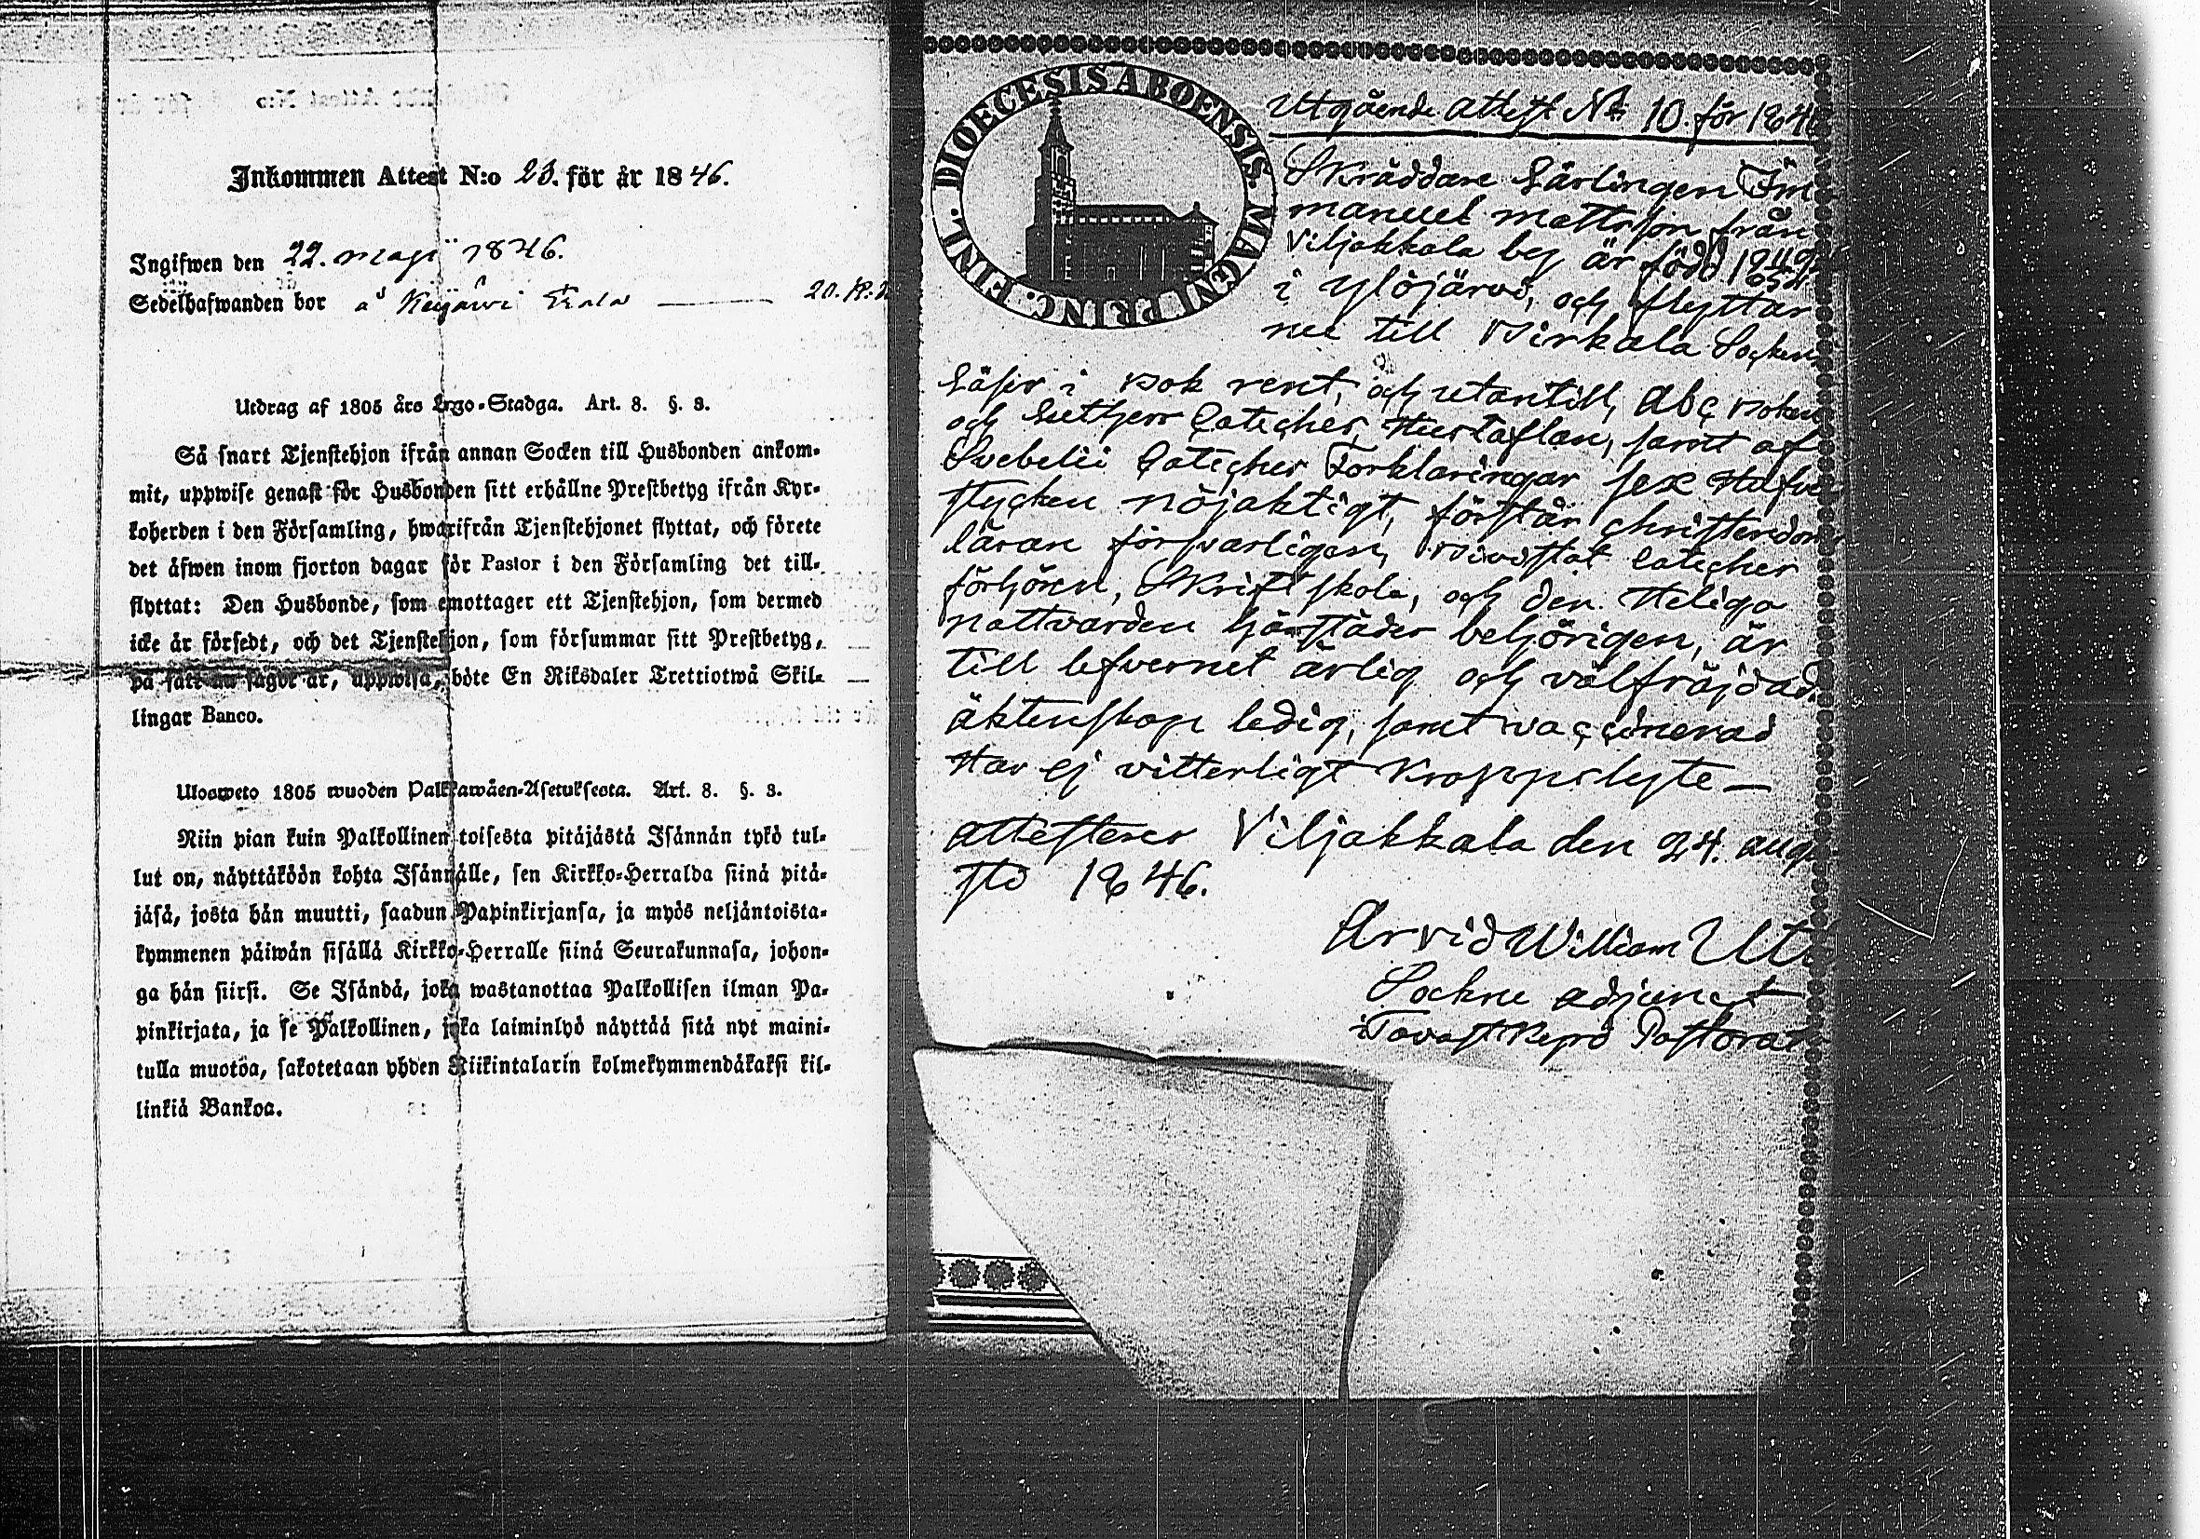 Inkommen Attest N:o 23. för år 1846.
Ingifwen den 22. maji 1846.
Sedelhafwanden bor
Utdrag af 1805 års Lego-Stadga. Art. 8. §. 3.
Så snart Tjenstehjon ifrån annan Socken till Husbonden ankom-
mit, uppwise genast för Husbonden sitt erhållne Prestbetyg ifrån Kyr-
koherden i den Församling, hwarifrån Tjenstehjonet flyttat, och förete
det äfwen inom fjorton dagar för Pastor i den Församling det till-
flyttat: Den Husbonde, som emottager ett Tjenstehjon, som dermed
icke är försedt, och det Tjenstehjon, som försummar sitt Prestbetyg,
på sätt nu sagdt är, uppwisa, böte En Riksdaler Trettiotwå Skil-
lingar Banco.
Ulosweto 1805 wuoden Palkkawäen-Asetuksesta. Art. 8. §. 3.
Niin pian kuin Palkollinen toisesta pitäjästä Isännän tykö tul-
lut on, näyttäköön kohta Isännälle, sen Kirkko-Herralda siinä pitä-
jäsä, josta hän muutti, saadun Papinkirjansa, ja myös neljäntoista-
kymmenen päiwän sisällä Kirkko-Herralle siinä Seurakunnasa, johon-
ga hän siirsi. Se Isändä, joka wastanottaa Palkollisen ilman Pa-
pinkirjata, ja se Palkollinen, joka laiminlyö näyttää sitä nyt maini-
tulla muotoa, sakotetaan yhden Riikintalarin kolmekymmendäkaksi kil-
linkiä Bankoa.
FINL. DIOECESIS ABOENSIS. MAGNI PRINC.
Utgående attest No 10. för 1846
Skräddare Lärlingen Im
manuel mattsson från
Viljakkala by är född
i Ylöjärvi, och flyttar
nu till Birkala Socken
Läser i bok rent, och utantill, abc boken
och Luthers Cateches, Hustaflan, samt af
Svebelii Cateches Förklaringar sex Hufvud
stycken nöjaktigt, förstår christendoms
läran försvarligen, bivistat catechis
förhören, Skriftskola, och den Heliga
nattvarden härstädes behörigen, är
till lefvernet ärlig och välfräjdad,
äktenskap ledig, samt vaccinerad
Har ej vitterligt Kroppslyte —
attesteras Viljakkala den 24. augu
sti 1846.
Arvid William
Sockne adjunct
i Tavastkyrö Pastorat